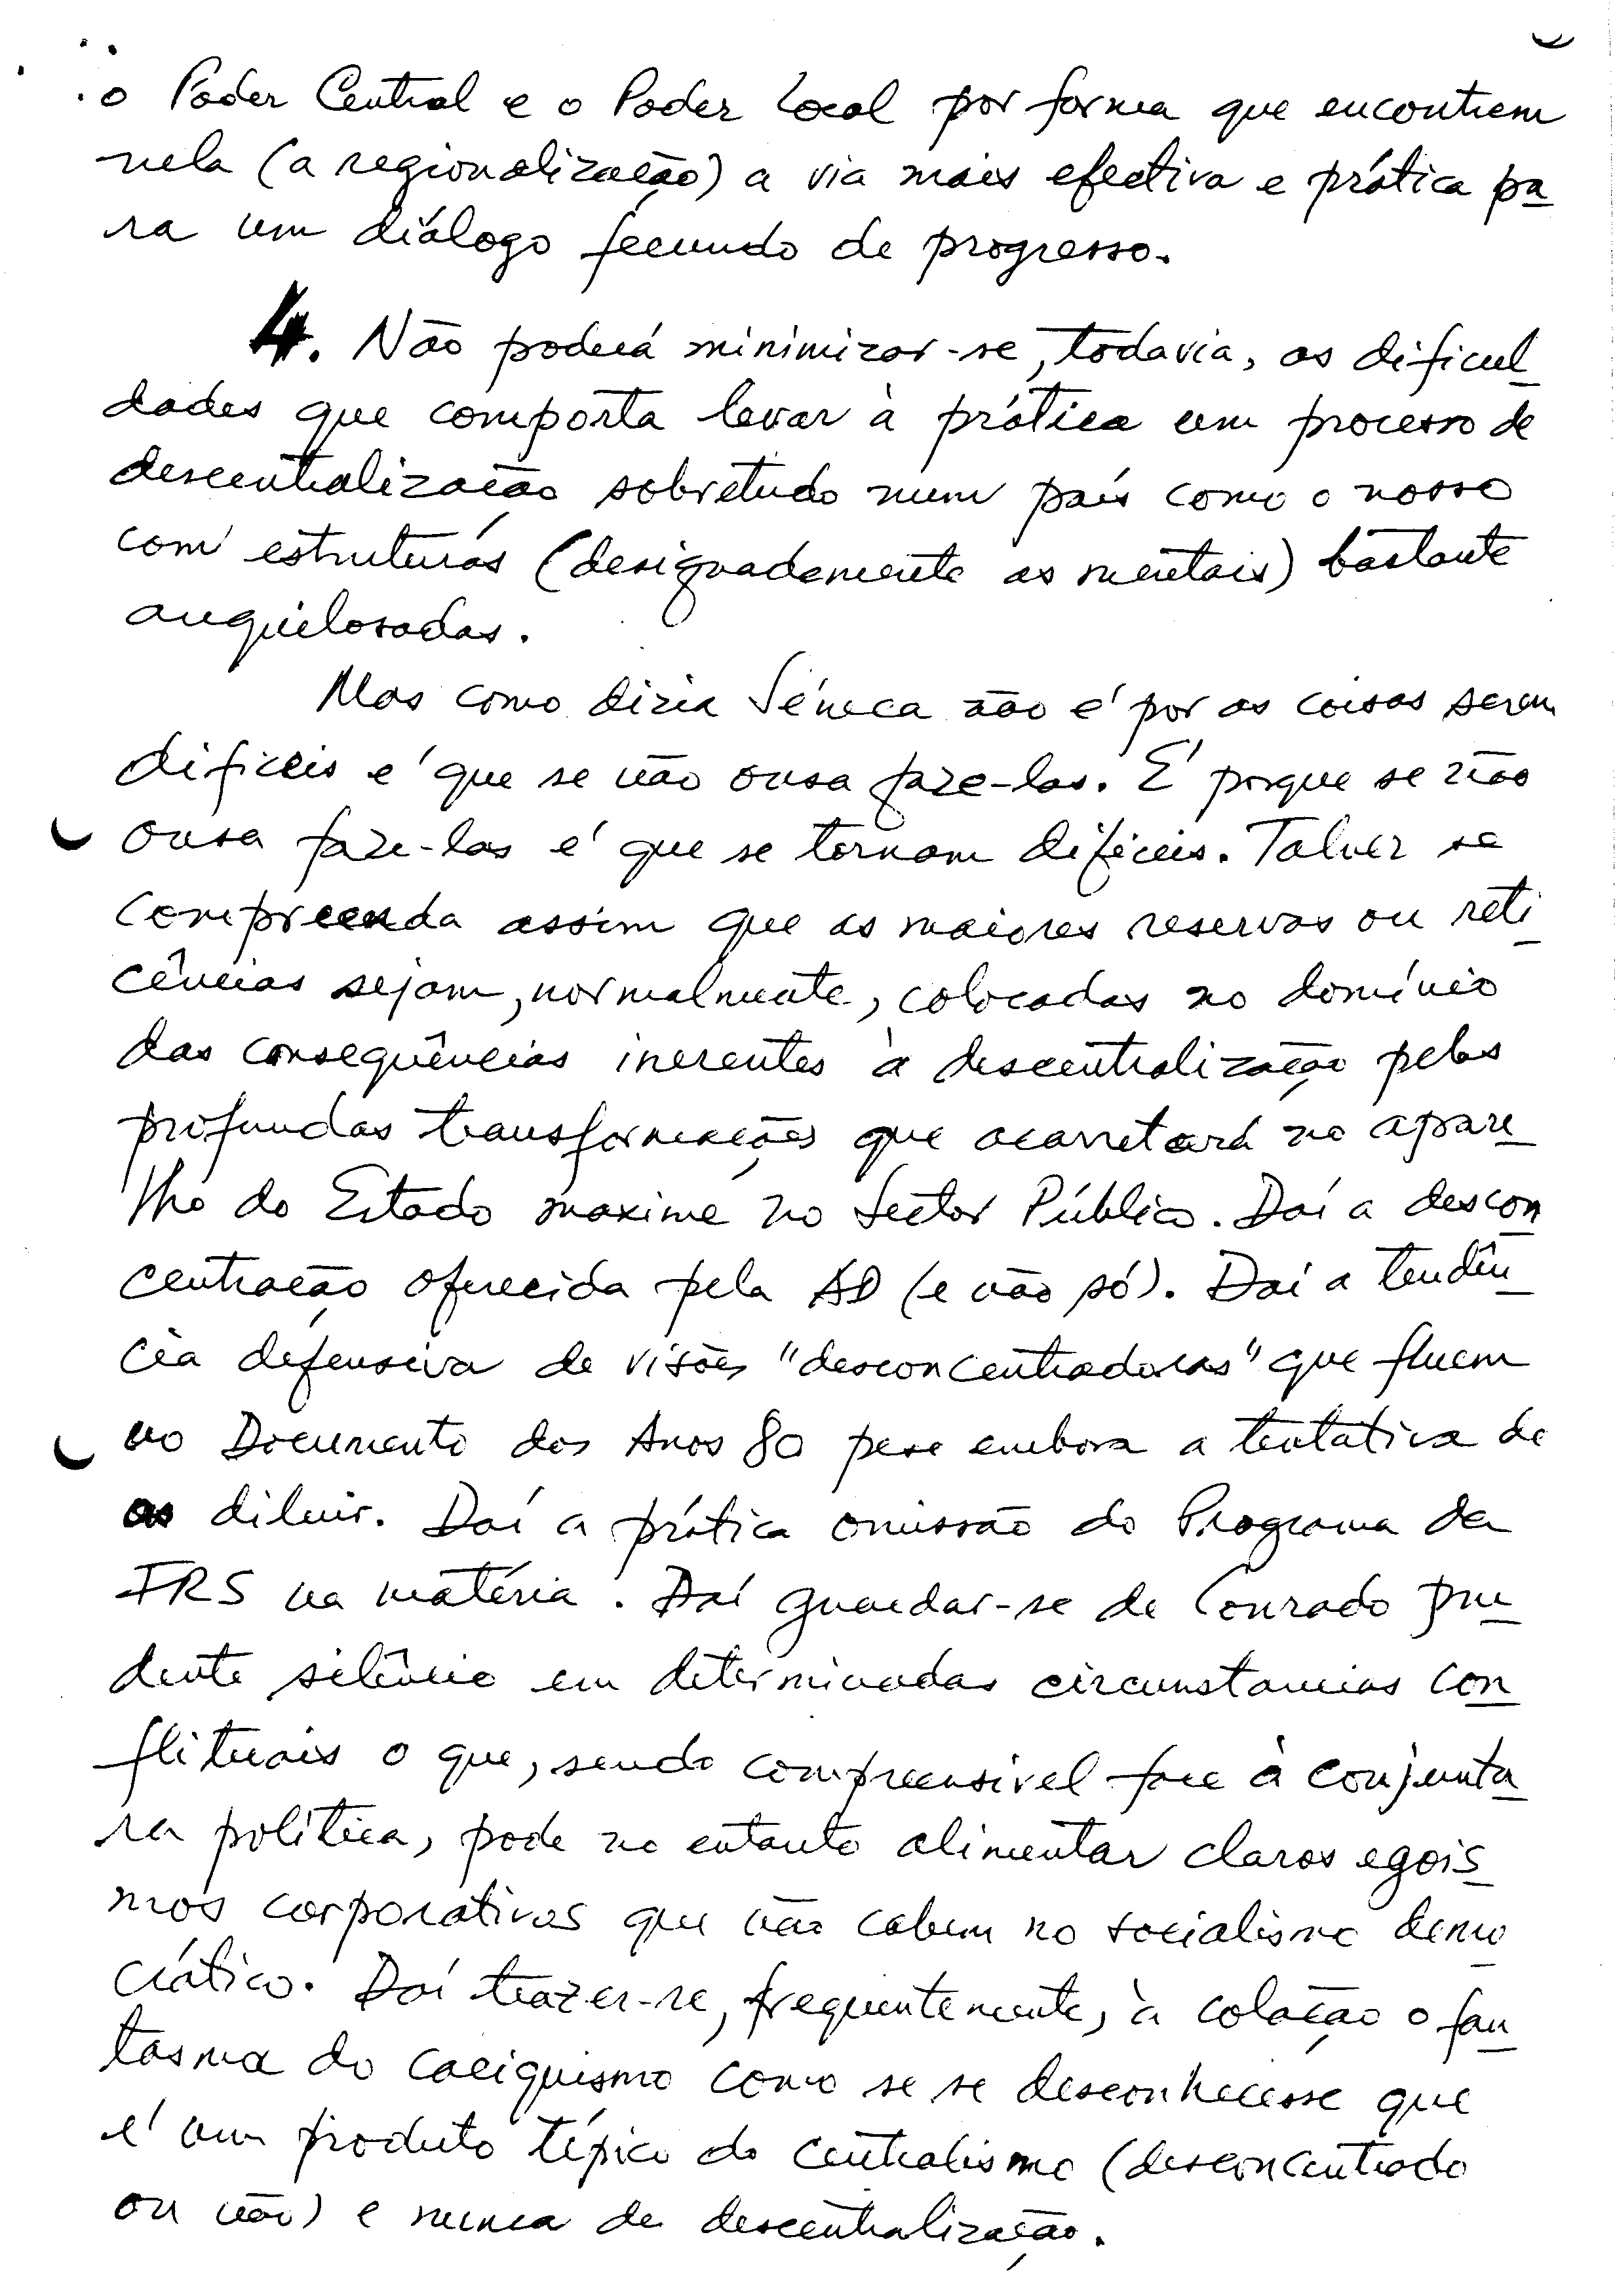 o Poder Central e o Poder Local por forma que encontrem
nela (a regionalização) a via mais efectiva e prática pa
ra um diálogo fecundo de progresso.
4. Não poderá minimizar-se, todavia, as dificul
dades que comporta levar à prática um processo de
descentralização sobretudo num país como o nosso
com estruturas (designadamente as mentais) bastante
anquilosadas.
Mas como diria Séneca não é por as coisas serem
difíceis é que se não ousa faze-las. É porque se não
ousa faze-las é que se tornam difíceis. Talvez se
compreenda assim que as maiores reservas ou reti
cências sejam, normalmente, colocadas no domínio
das consequências inerentes à descentralização pelas
profundas transformações que acarretará no apare
lho do Estado maxime no Sector Público. Daí a descon
centração oferecida pela AD (e não só). Daí a tendên
cia defensiva de visões "desconcentradoras" que fluem
no Documento dos Anos 80 pese embora a tentativa de
as diluir. Daí a prática omissão do Programa da
FRS na matéria. Daí guardar-se de Conrado pru
dente silêncio em determinadas circunstancias con
flituais o que, sendo compreensivel face à conjuntu
ra política, pode no entanto alimentar claros egois
mos corporativos que não cabem no socialismo demo
crático. Daí trazer-se, frequentemente, à colação o fan
tasma do caciquismo como se se desconhecesse que
é um produto típico do centralismo (desconcentrado
ou não) e nunca da descentralização.